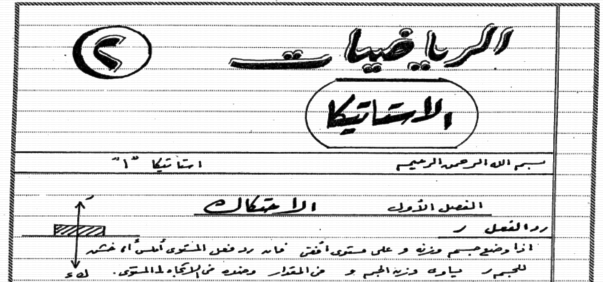 الرياضيات
٢
الاستاتيكا
بسم الله الرحمن الرحيم
استاتيكا "١"
الفصل الأول
الاحتكاك
رد الفعل ر
اذا وضع جسم وزنه و على مستوى أفقى فان رد فعل المستوى أملس أم خشن
للجسم ر يساوى وزن الجسم و فى المقدار وضده فى الاتجاه المستوى.
ر